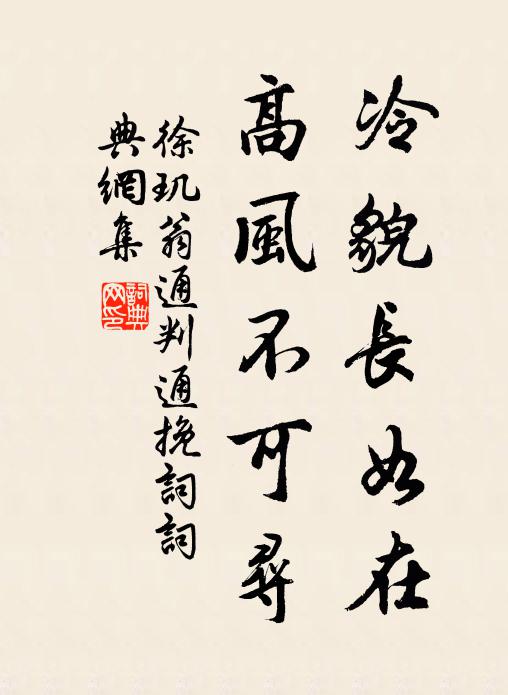 冷貌長如在
高風不可尋
徐玑翁通判通挽詞詞
典網集
詞典
网印